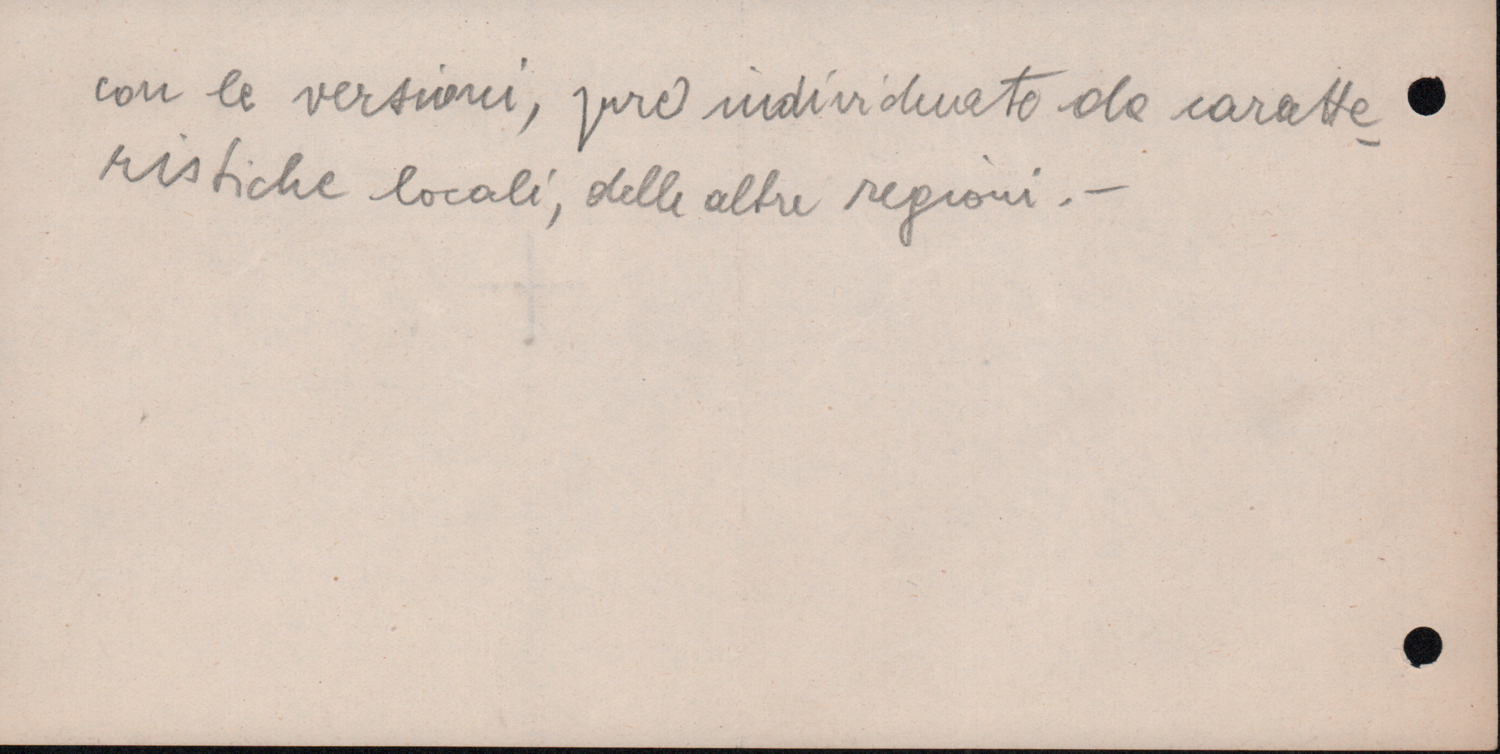 con le versioni, pure individuate da caratte-
ristiche locali, delle altre regioni. —